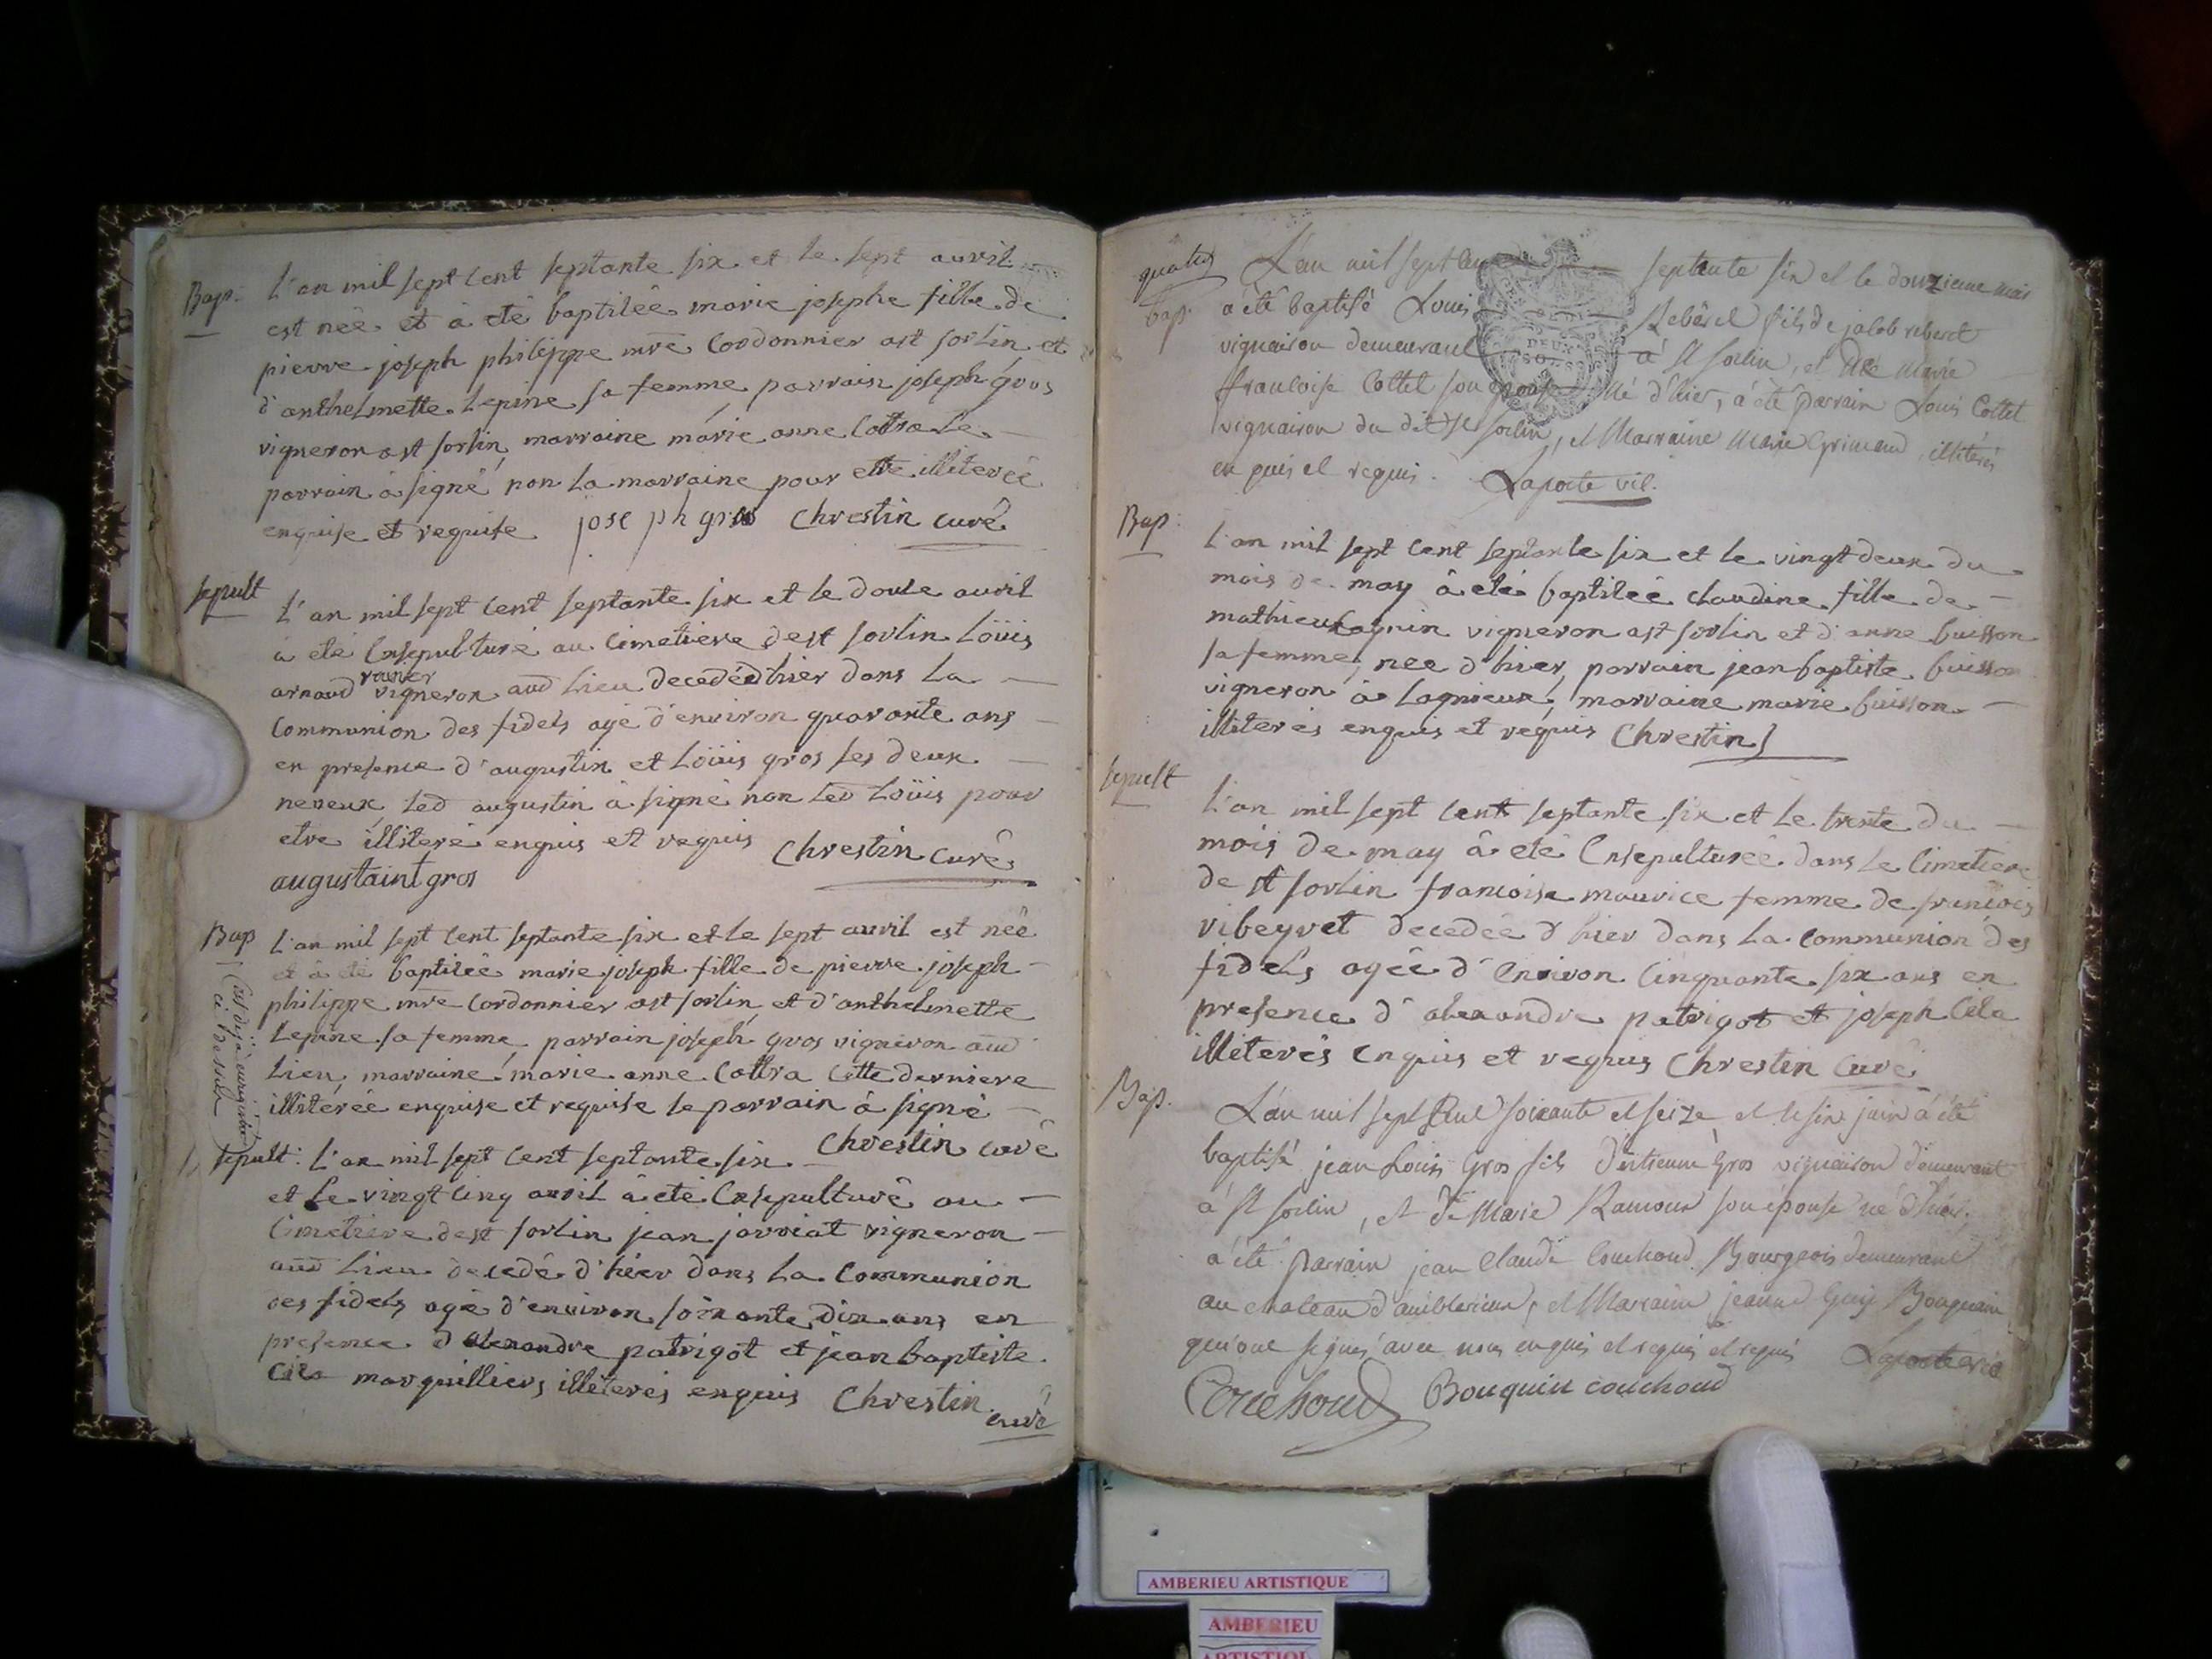 Bap:
L'an mil sept cent septante six et le sept avvril
est neé et à eté baptiseé marie josephe fille de
pierre joseph philippe mre Cordonnier a st sorlin et
d'anthelmette Lepine sa femme parrain joseph gros
vigneron a st sorlin marraine marie anne Cottra Le
parrain à signé non La marraine pour etre illitereé
enquise et requise joseph gros Chrestin curé
sepult
L'an mil sept cent septante six et le douse avril
à eté Ensepulturé au Cimetiere de st sorlin Loüis
arnaud vigneron aud Lieu decedé d'hier dans La
Communion des fidels agé d'environ quarante ans
en presence d'augustin et Loüis gros ses deux
neveux, Led augustin à signé non Led Loüis pour
etre illiteré enquis et requis Chrestin curé
augustaint gros
Bap
L'an mil sept cent septante six et le sept avvril est neé
et à eté baptiseé marie joseph fille de pierre joseph
philippe mre Cordonnier a st sorlin et d'anthelmette
Lepine sa femme parrain joseph gros vigneron aud
Lieu, marraine marie anne Cottra Cette derniere
illitereé enquise et requise le parrain à signé
Chrestin curé
sepult: L'an mil sept cent septante six
et Le vingt cinq avril à eté Ensepulturé au
Cimetiere de st sorlin jean jarriat vigneron
aud Lieu decedé d'hier dans La Communion
des fidels agé d'environ soixante dix ans en
presence d'alexandre patrigot et jean baptiste
Cila marguilliers illiterés enquis Chrestin
curé
quatre
L'an mil sept cent septente six et le douzieme mai
bap.
a été baptisé Louis Reberel fils de jacob reberel
vigneiron demeurant à St sorlin, et de Marie
francoise Cottet son epouse né d'hier, à été parrain Louis Cottet
vigneiron du dit St sorlin, et Marraine Marie Grimand, illiterés
enquis et requis. Laporte vic.
DEUX
SOLS
Bap:
L'an mil sept cent septante six et le vingt deux du
mois de may à eté baptiseé claudine fille de
mathieu vigneron a st sorlin et d'anne buisson
sa femme, neé d'hier, parrain jean baptiste buisson
vigneron à Lagnieux, marraine marie buisson
illiterés enquis et requis Chrestin
sepult
L'an mil sept cent septante six et Le trente du
mois de may à eté Ensepultureé dans Le Cimetiere
de st sorlin francoise maurice femme de francois
vibeyret decedeé d'hier dans La Communion des
fidels ageé d'Environ Cinquante six ans en
presence d'alexandre patrigot et joseph Cila
illiterés Enquis et requis Chrestin Curé
Bap.
L'an mil sept cent soixante et seize et le six juin à été
baptisé jean Louis Gros fils d'Estienne Gros vigneiron demeurant
à St sorlin, et de Marie Ramoux son épouse né d'hier,
a été parrain jean Claude Couchoud Bourgeois demeurant
au chateau d'amblerieux, et Marraine jeanne Guy Bouquain
qui ont signés avec nous enquis et requis et requis Laporte vic
Couchoud Bouquin couchoud
AMBERIEU ARTISTIQUE
AMBERIEU
ARTISTIQUE